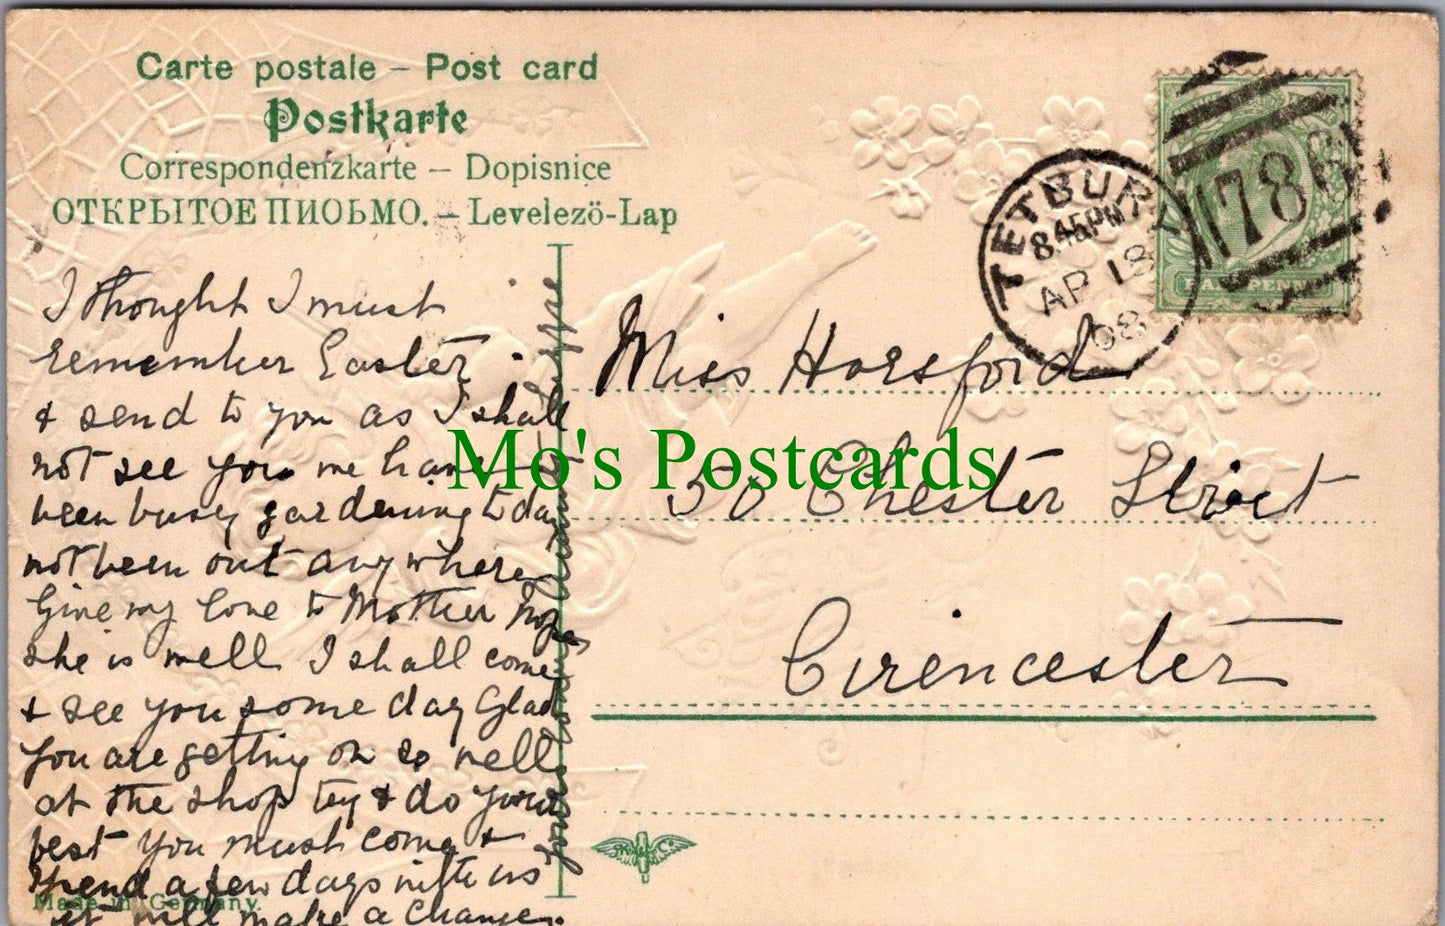 Carte postale – Post card
Postkarte
Correspondenzkarte – Dopisnice
ОТКРЫТОЕ ПИСЬМО. – Levelezö-Lap
TETBURY
8.45PM
AP 18
08
786
HALFPENNY
I thought I must
remember Easter
& send to you as I shall
not see you we have
been busy gardening today
not been out anywhere
Give my love to Mother hope
she is well I shall come
& see you some day Glad
you are getting on so well
at the shop try & do your
best You must come &
spend a few days with us
it will make a change.
your
Miss Horsford
50 Chester Street
Cirencester
Mo's Postcards
Made in Germany